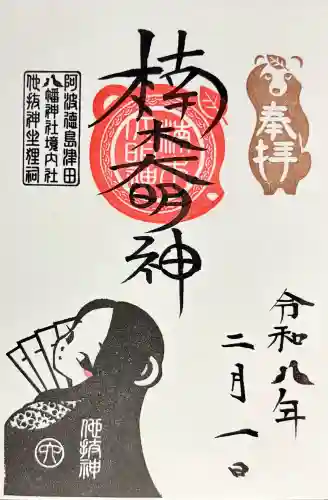 奉拝
楠木大明神
阿波徳島津田
八幡神社境内社
他抜神坐狸祠
令和八年
二月一日
他抜神
六